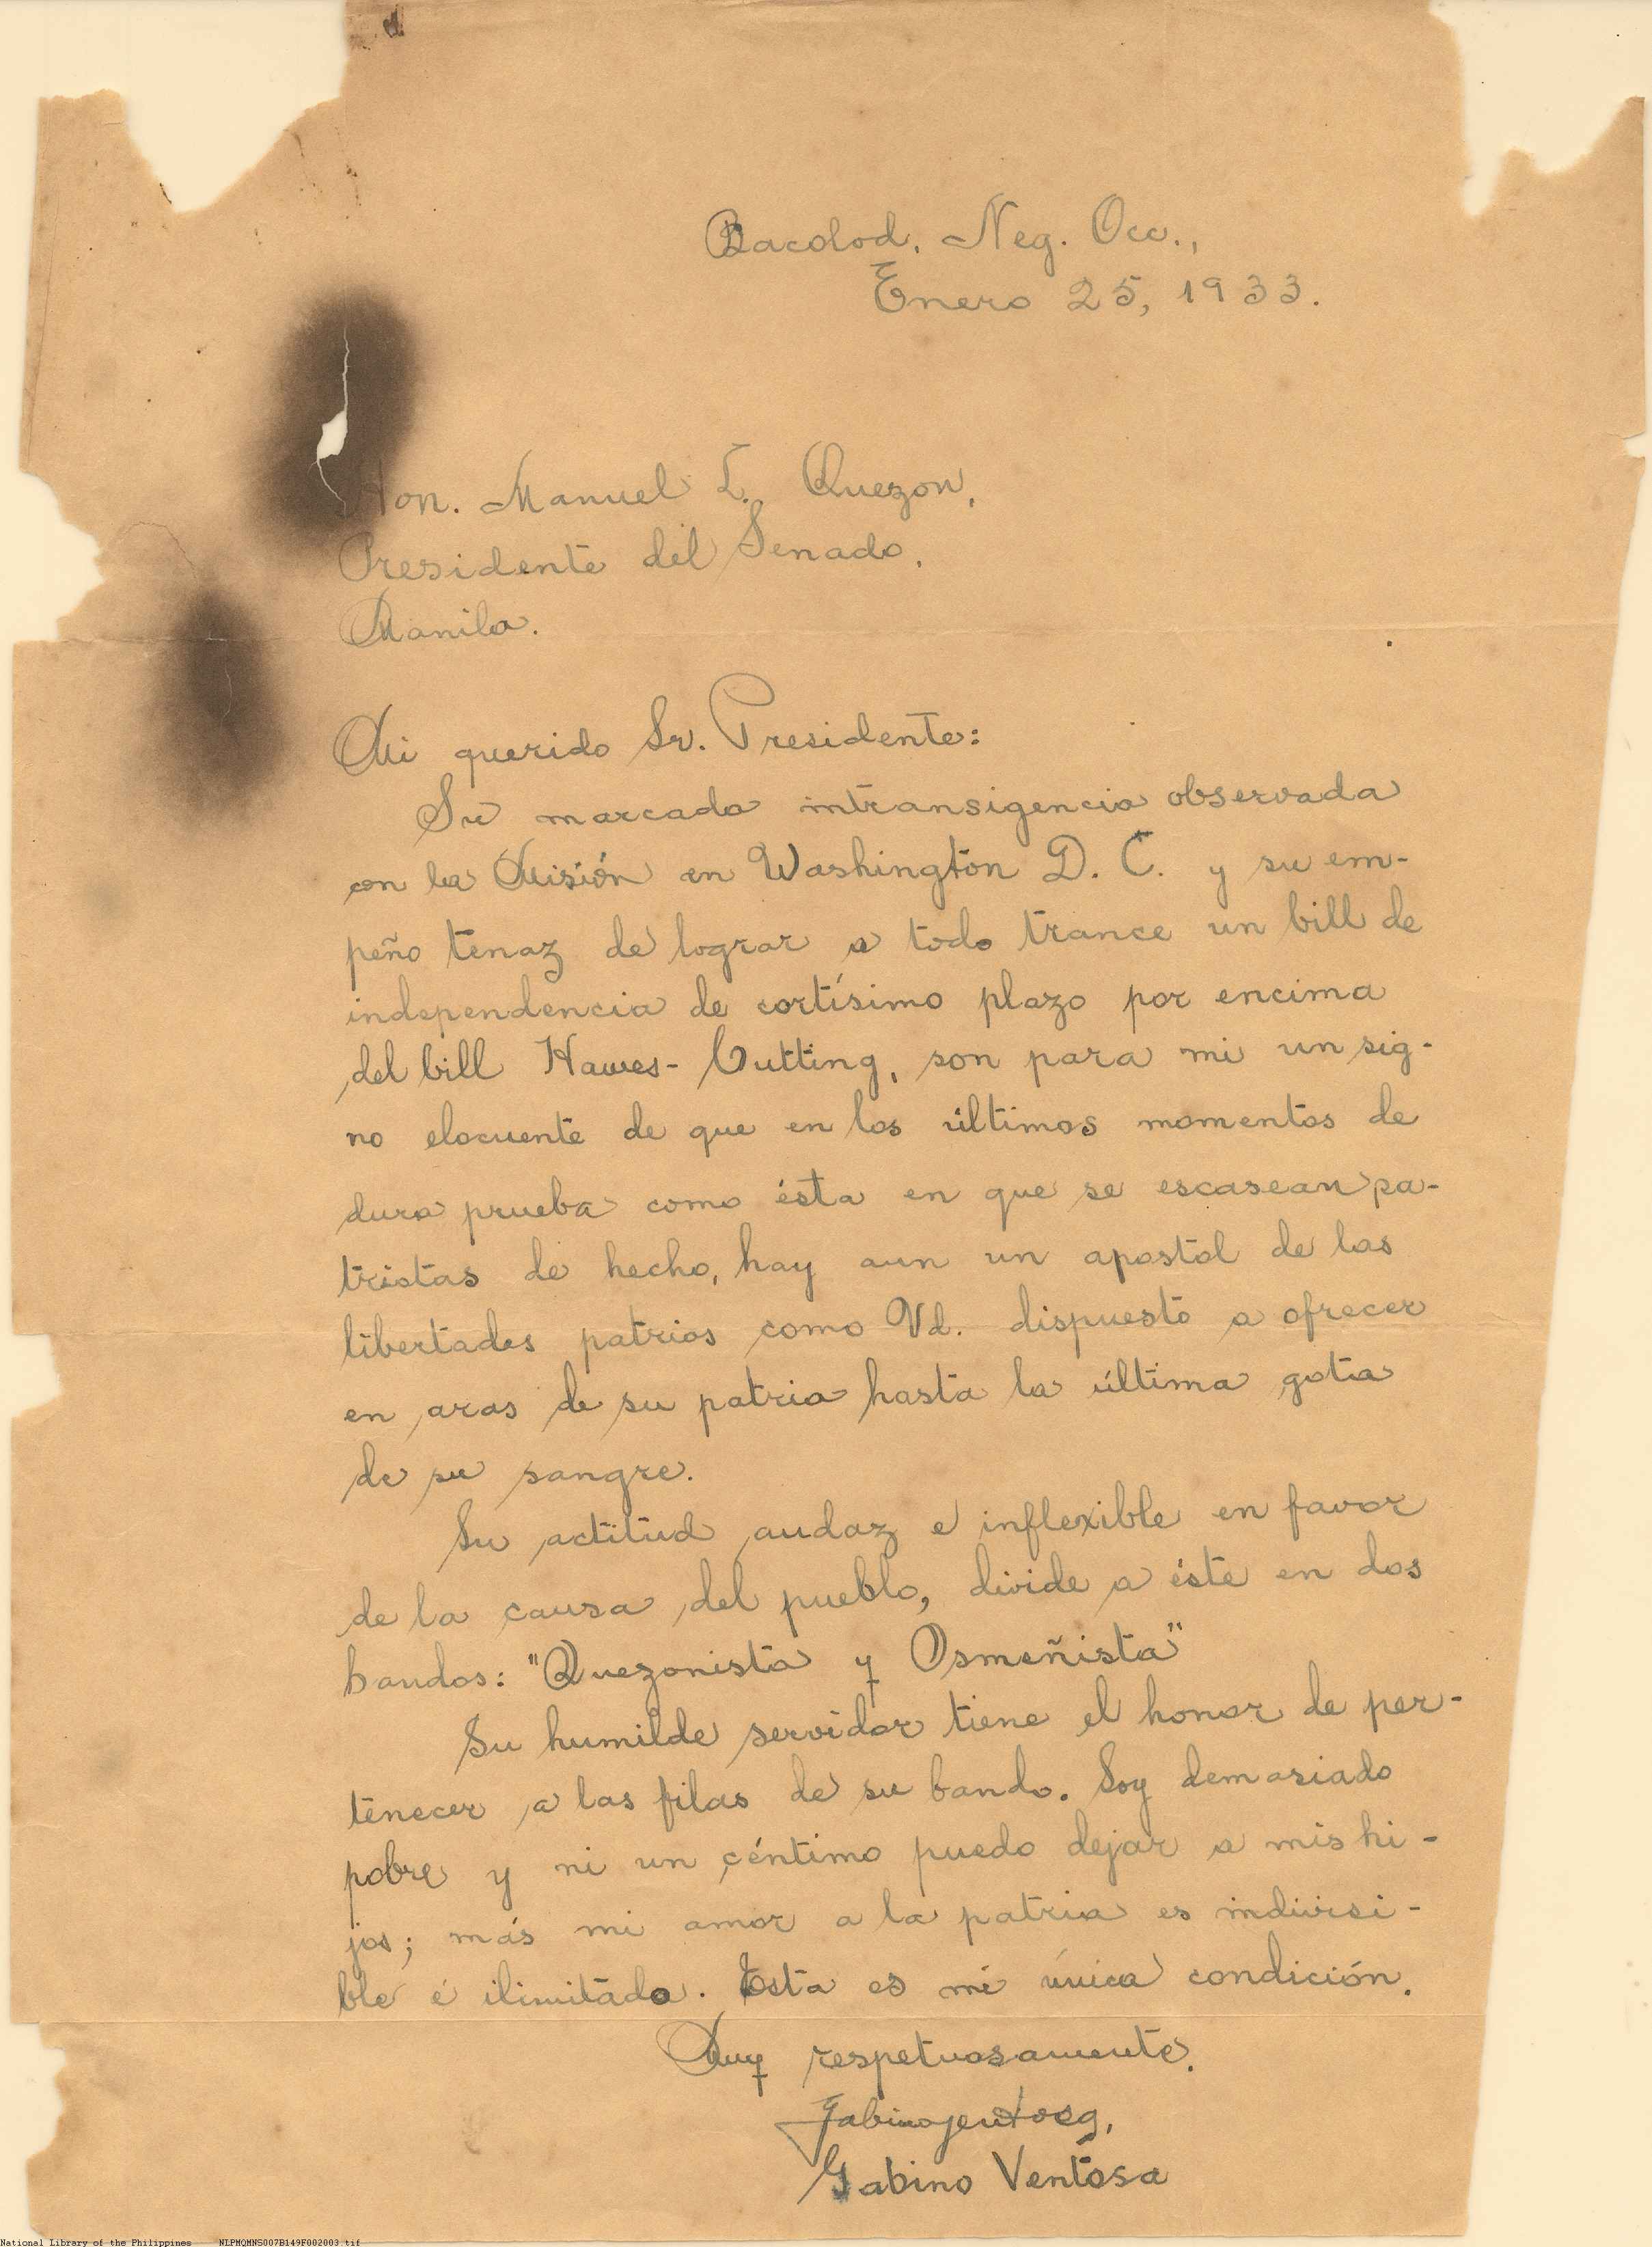 Bacolod, Neg. Occ.,
Enero 25, 1933.
Hon. Manuel L. Quezon,
Presidente del Senado,
Manila.
Mi querido Sr. Presidente:
Su marcada intransigencia observada
con la Misión en Washington D. C. y su em-
peño tenaz de lograr a todo trance un bill de
independencia de cortísimo plazo por encima
del bill Hawes-Cutting, son para mi un sig-
no elocuente de que en los últimos momentos de
dura prueba como ésta en que se escasean pa-
triotas de hecho, hay aun un apostol de las
libertades patrias como Vd. dispuesto a ofrecer
en aras de su patria hasta la última gota
de su sangre.
Su actitud audaz e inflexible en favor
de la causa del pueblo, divide a éste en dos
bandos: "Quezonista y Osmeñista"
Su humilde servidor tiene el honor de per-
tenecer a las filas de su bando. Soy demasiado
pobre y ni un céntimo puedo dejar a mis hi-
jos; más mi amor a la patria es indivisi-
ble é ilimitado. Esta es mi única condición.
Muy respetuosamente,
Gabino Ventosa
National Library of the Philippines NLPMQMNS007B149F002003.tif